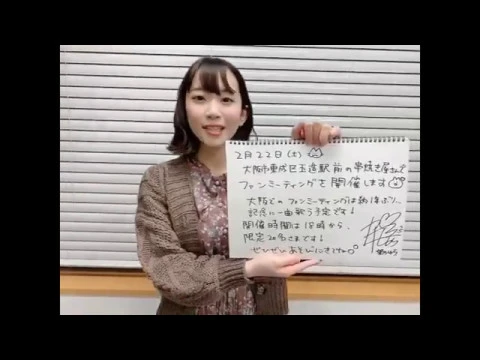 2月22日(土)
大阪市東成区玉造駅前の串焼き屋さんで
ファンミーティングを開催します
大阪でのファンミーティングは約1年ぶり、
記念に一曲歌う予定です!
開催時間は18時から、
限定20名さまです!
ぜひぜひあそびにきてね